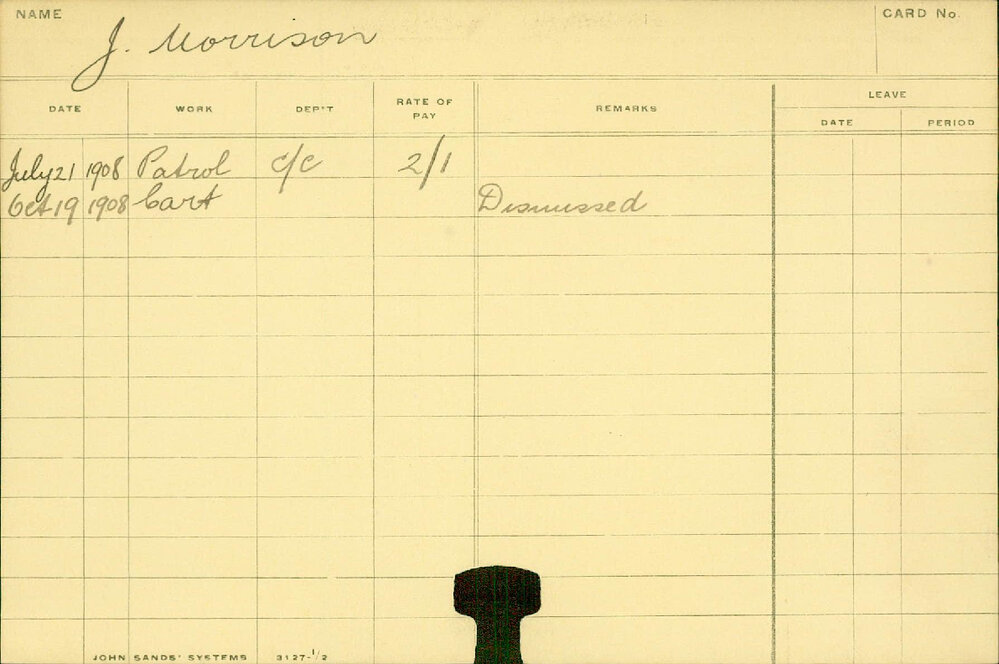 NAME J. Morrison CARD No.
DATE WORK DEP'T RATE OF PAY REMARKS LEAVE
DATE PERIOD
July 21 1908 Patrol C/C 2/1
Oct 19 1908 Cart Dismissed
JOHN SANDS' SYSTEMS 3127-1/2